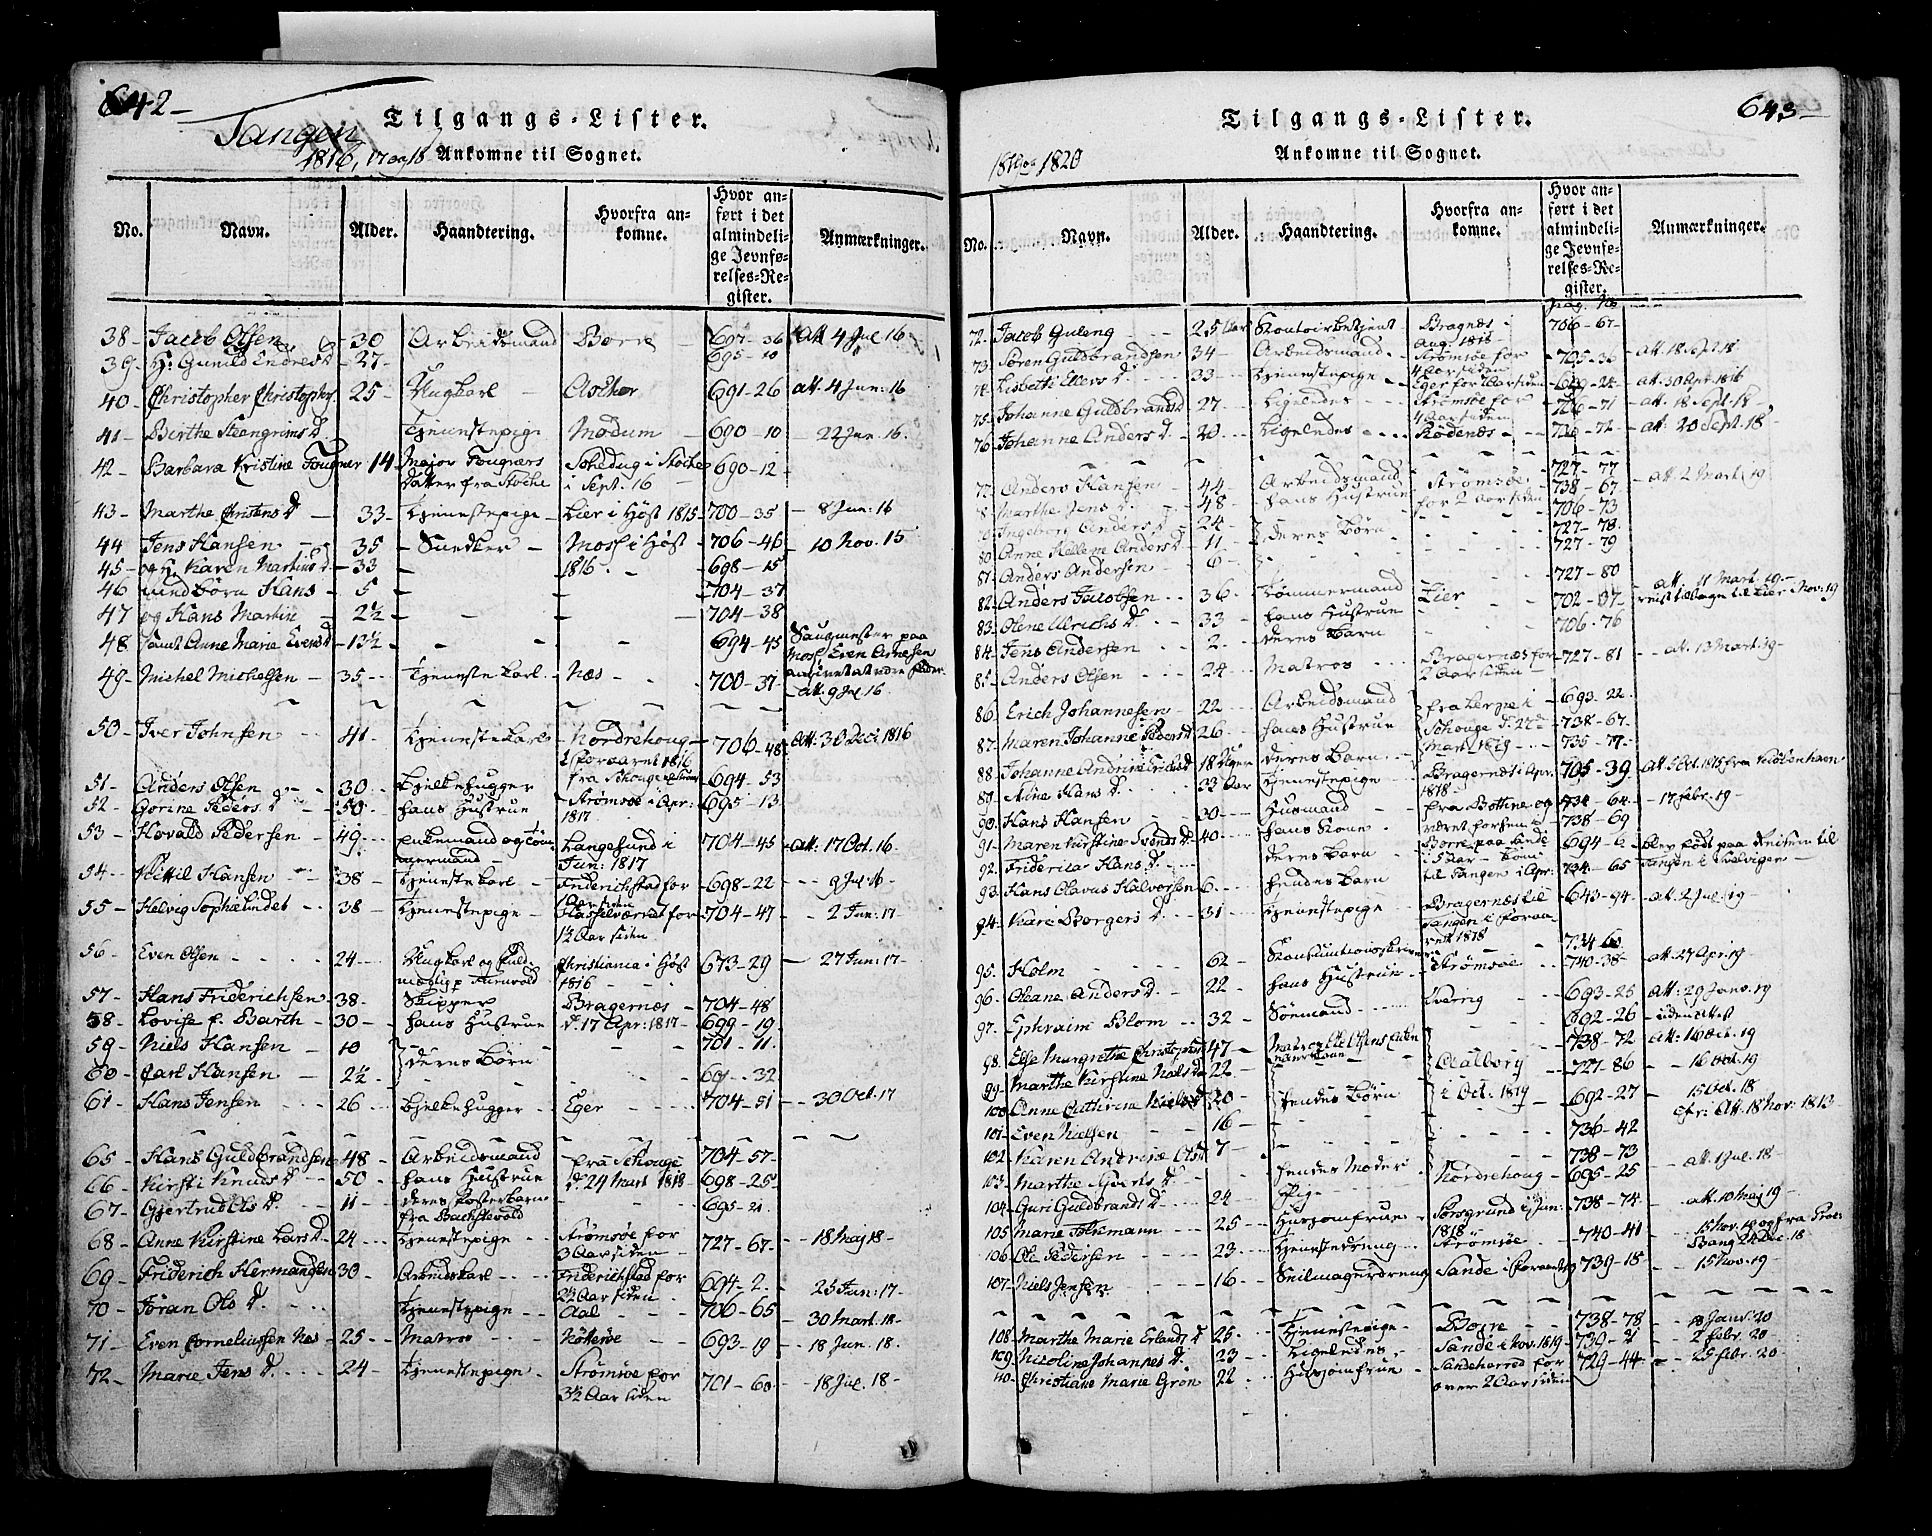 642
Tangen
Tilgangs-Lister.
1816, 17 og 18
Ankomne til Sognet.
No. Navn. Alder. Haandtering. Hvorfra ankomne. Hvor anført i det almindelige Jevnførelses-Register. Anmærkninger.
38 - Jacob Olsen - 30 Arbeidsmand Borre 697-36 Att 4 Jul 16
39 - H: Gunild Endresd - 27 - 695-10
40 - Christopher Christophers. 25 - Ungkarl - Asker 691-26 att. 4 Jun: 16
41 - Birthe Steengrims D Tjenestepige Modum - 690-10 - 22 Jun. 16.
42 - Barbara Kristine Fougner 14 Major Fougners 690-12
Datter fra i Sept. 16
43 - Marthe Christens D - 33 - Tjenestepige - Lier i Høst 1815 - 700-35 - 8 Jun: 16
44 Jens Hansen - 35 - Snedker - Moss i Høst 706-46 - 10 Nov. 15
45 - og H. Karen Martins d - 33 - 1816 - 698-15
46 med Børn Hans - 5 - 704-37
47 og Hans Martin - 2½ - 704-38
48 samt Anne Marie Evensd - 13½ - 694-45 Saugmester paa
Moss Even Arnesen
49 - Michel Michelsen - 35 - Tjenestekarl - Næs - 700-37
- att. 9 Jul 16
50 - Iver Johnsen 41 - Tjenestekarl - Nordrehoug - 706-48 Att: 30 Dec: 1816
i foraaret 1816
51 - Anders Olsen - 30 - Bjelkehugger fra 694-53
52 - Gorine Peders D - 50 - hans Hustrue - Strømsøe i Apr: 695-13
1817
53 - Hovald Pedersen - 49 - Enkemand og Tøm- Langesund i 704-45 att: 17 Oct. 16
mermand - Jun: 1817
54 - Kittil Hansen - 38 - Tjenestekarl - Friderichstad for 698-22 - 9 Jul 16 -
1 Aar siden
55 - Helvig Sophie Lindet - 38 - Tjenestepige - Hasselværket for 704-47 - 2 Jun: 17 -
1½ Aar siden
56 - Even Olsen - 24 - Ungkarl og Christiania i Høst 673-29 - 27 Jun: 17 -
1816 -
57 - Hans Friderichsen 38 - Skipper Bragernæs - 704-48
58 - Lovise f. Barth - 30 - hans Hustrue d. 17 Apr: 1817 - 699-19
59 - Niels Hansen - 10 } deres Børn - 701-11
60 - Carl Hansen - 2½ - 691-32
61 - Hans Jensen 26 - Bjelkehugger - Eger - 704-51 - 30 Oct. 17
65 - Hans Guldbrandsen 48 - Arbeidsmand fra Schouge 704-57 -
66 - Kirsti Knuds D - 50 - hans Hustrue d. 24 Mart 1818 - 698-25
67 - Gjertrud Ols D. - 11 - deres Fosterbarn - 695-21
fra
68 - Anne Kirstine Lars D - 24 - Tjenestepige - Strømsøe for 727-67 - 18 Maj 18 -
3 Aar siden
69 - Friderich Hermandsen 30 - Arbeidskarl Friderichstad for 694-2 - 25 Jun: 17 -
2½ Aar siden
70 - Jøran Ols D. Tjenestepige - Aal 706-65 30 Mart. 18 -
71 - Even Corneliussen Næs - 25 - Matros Nøterøe - 693-19 - 18 Jun. 18 -
72 - Marie Jens D. - 24 - Tjenestepige - Strømsøe for 701-60 - 18 Jul. 18 -
3½ Aar siden
643
Tilgangs-Lister.
1819 og 1820
Ankomne til Sognet.
No. Navn. Alder. Haandtering. Hvorfra ankomne. Hvor anført i det almindelige Jevnførelses-Register. Anmærkninger.
pag. No
72 - Jacob Guleng - 25 Aar Kontoirbetjent Bragnæs i 706-67
Aug. 1816 -
73 - Søren Guldbrandsen 34 - Arbeidsmand - Strømsøe for 705-36 att. 18 Sept 18
4 Aar siden
74 Lisbeth Ellers D. 33 - Tjenestepige - Eger for 1 Aar siden - 24 att. 30 Apr. 1816
75 - Johanne Guldbrands D 27 - Ligeledes Strømsøe for 706-71 - att. 18 Sept 18 -
4 Aar siden
76 Johanne Anders D. 20 - Ligeledes Rødenæs - 72 att 20 Sept. 18 -
77 - Anders Hansen - 44 - Arbeidsmand Strømsøe 727-77 - att 2 Mart 19
Marthe Jens D. - 48 - hans Hustrue for 2 Aar siden 738-67
Ingeborg Anders D - 24 - deres Børn 706-73
80 - Anne Hellene Anders D - 11 - 727-78
81 - Anders Andersen - 6 - 727-79
727-80
82 - Anders Jacobsen 36 - Tømmermand Lier 702-37 att. 11 Mart. 19 -
reist tilbage til Lier Nov: 19
83 - Olene Ulrichs D. - 33 - hans Hustrue 706-76
84 - Jens Andersen - 2 - deres Barn
85 - Anders Olsen - 24 - Matros Bragernæs for 727-81 - att. 13 Mart. 19 -
2 Aar siden -
86 - Erich Johannesen - 22 - Arbeidsmand fra i 693-22
87 - Maren Johanne Peders D 26 - hans Hustrue Schouge d. 22 738-67
88 - Johanne Andrine Erichs D 18 Uger deres Barn Mart 1819 735-77
89 - Aline Hans D. 33 Aar Tjenestepige Bragernæs i Apr. 705-39 att 5 Oct 1815 fra Kiøbenhavn
1818
90 - Hans Hansen - 30 - Husmand fra og 734-64 - 17 febr. 19 -
91 - Maren Kirstine Svends D - 40 - hans Kone været forhen i 738-69
92 - Friderica Hans D. deres Barn Borre paa Lande 694-6 blev født paa Reisen til
i 5 Aar - kom Tangen i
93 - Hans Olavus Halvorsen 6 - hendes Barn til Tangen i Apr: 734-65
94 - Kari Børgers D. - 31 - Tjenestepige Bragernæs til 643-94 - att. 2 Jul. 19 -
Tangen i foraa-
ret 1818
734-60
95 - Holm 62 - Konsumtionsskriver Strømsøe 740-38 - att. 27 Apr. 19 -
96 - Oleane Anders D. - 22 - hans Hustrue
97 - Ephraim Blom - 32 - Sømand Sverrig 693-25 Att: 29 Janv. 19
692-26 - uden Attest
98 - Else Margrethe Christophers 47 - Aalborg 738-72 Att: 16 Oct. 19
99 - Marthe Kirstine Niels D 22 - i Oct. 1819 727-86 - 16 Oct. 19
100 - Anne Cathrine Niels D 20 - hendes Børn 692-27 - 15 Oct. 18
cfr: Att. 18 Nov: 1813
101 - Even Nielsen - 16 - 736-42
102 - Karen Andrine Ols D - 7 - 738-73
103 - Marthe D - hendes Moder Nordrehoug - 695-25 att. 1 Jul. 18 -
104 - Guri Guldbrands D - 24 - Pige Porsgrund i Jun: 738-74 - att. 10 Maj 19 -
1818
105 Marie - 25 - Husjomfrue Strømsøe - 740-41 15 Nov. 19 og fra
24 Dec 18
106 - Ole Pedersen - 23 - Tjenestedreng
107 - Niels Jensen 16 - Seilmagerdreng Sande i foraaret 19 739-18 - 15 Nov. 19 -
108 - Marthe Marie Erlands D 25 - Tjenestepige Borre - 738-78 18 Janv. 20
109 - Nicoline Johannes D. 23 - Ligeledes - Sande i Nov. 1819 - 730-21 2 febr. 20
110 - Christiane Marie Grøn 22 Husjomfrue Sandeherred for 729-44 - 25 febr. 20 -
over 2 Aar siden